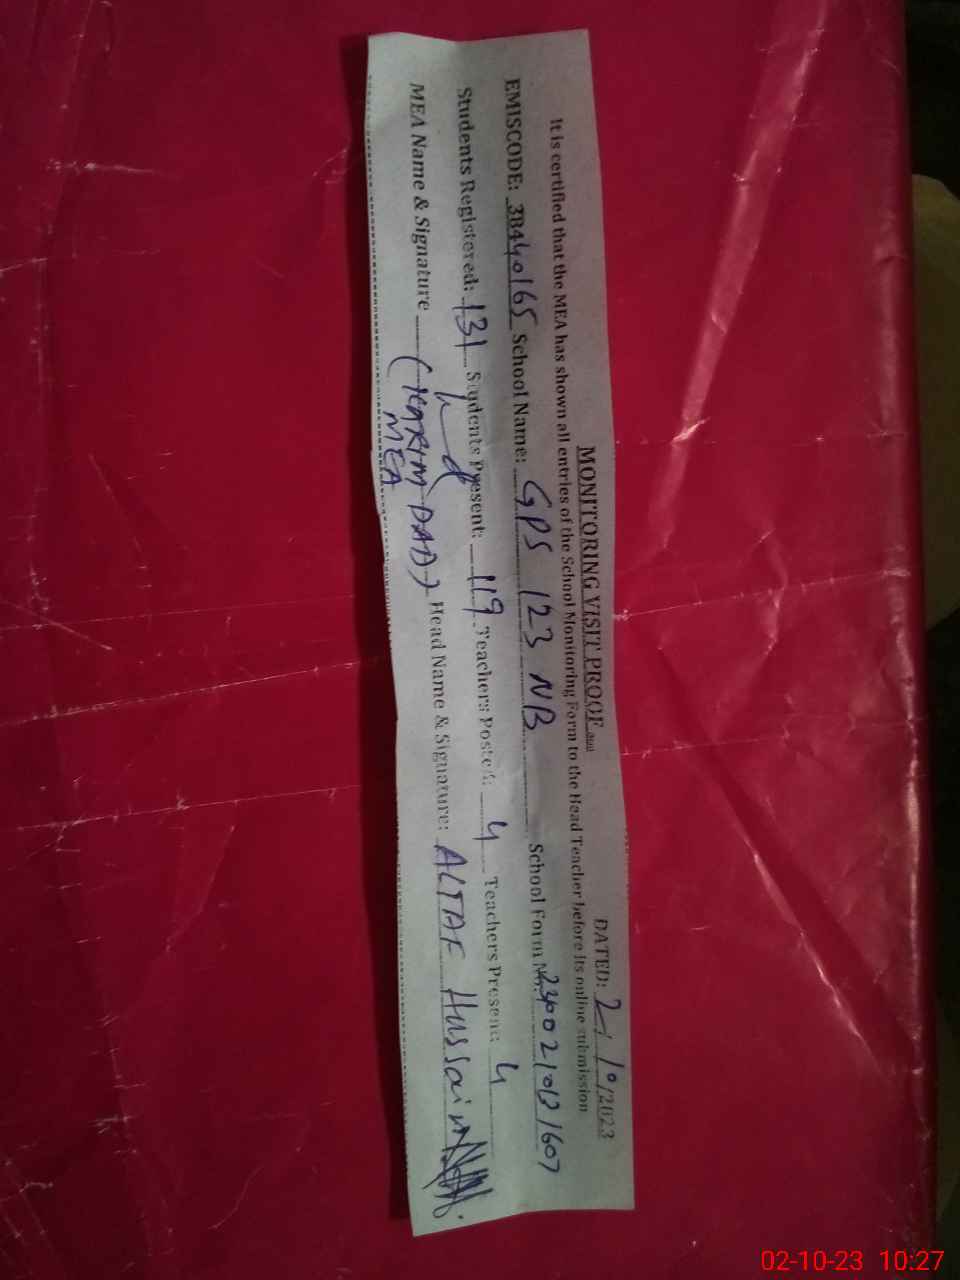 MONITORING VISIT PROOF
DATED: 2/10/2023
It is certified that the MEA has shown all entries of the School Monitoring Form to the Head Teacher before its online submission
EMISCODE: 38440165 School Name: GPS 123 NB School Form No.
Students Registered: 131 Students Present: 119 Teachers Posted: 4 Teachers Present: 4
MEA Name & Signature (KARIM DAD) Head Name & Signature: ALTAF Hussain
MEA
02-10-23 10:27